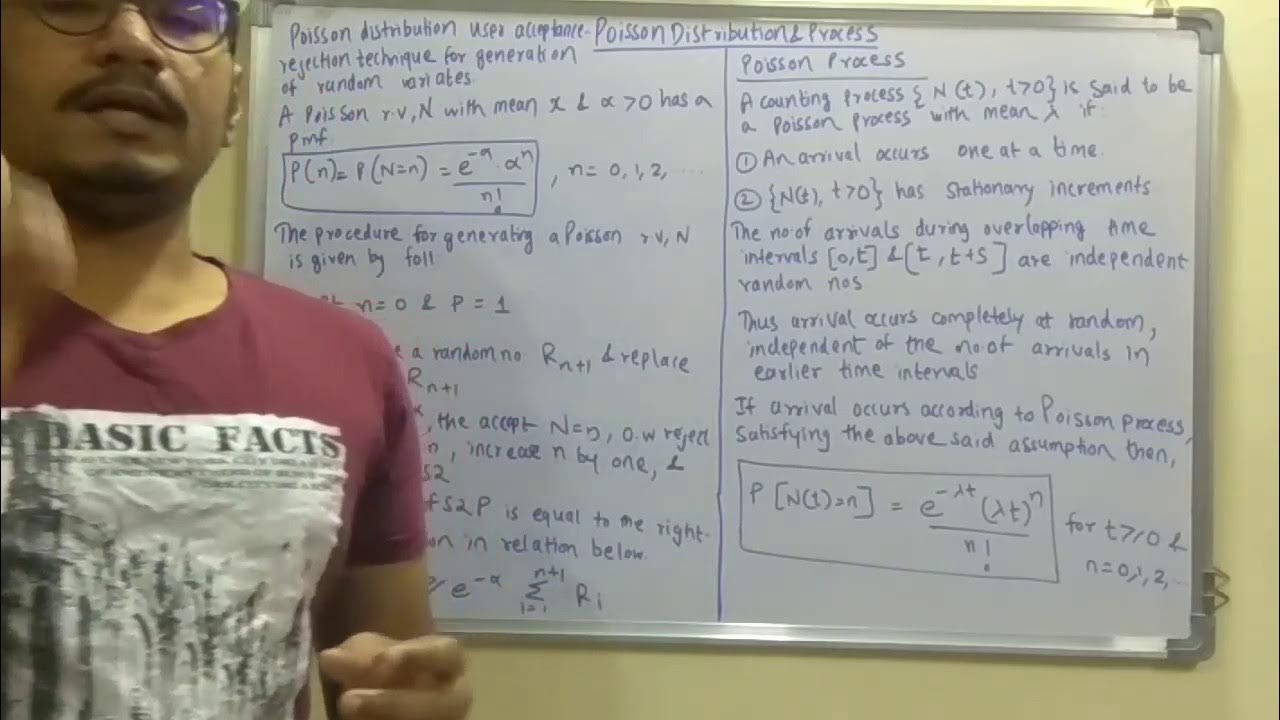 Poisson Distribution & Process
Poisson distribution user acceptance-
rejection technique for generation
of random variates
A Poisson r.v, N with mean x & α >0 has a
pmf
P(n)= P(N=n) = e^-α . α^n / n! , n= 0, 1, 2, ...
The procedure for generating a Poisson r.v, N
is given by foll
n=0 & P = 1
a random no R_n+1 & replace
R_n+1
, the accept N=n, o.w reject
n, increase n by one, &
S2
S2 P is equal to the right-
on in relation below.
e^-α Σ_i=1^n+1 R_i
Poisson Process
A counting process { N(t), t>0} is said to be
a Poisson process with mean λ if:
① An arrival occurs one at a time.
② {N(t), t>0} has stationary increments
The no.of arrivals during overlopping time
intervals [0,t] & [t, t+s] are independent
random nos
Thus arrival occurs completely at random,
independent of the no.of arrivals in
earlier time intervals
If arrival occurs according to Poisson process,
Satisfying the above said assumption then,
P [N(t)=n] = e^-λt (λt)^n / n! for t≥0 &
n=0,1,2,...
BASIC FACTS